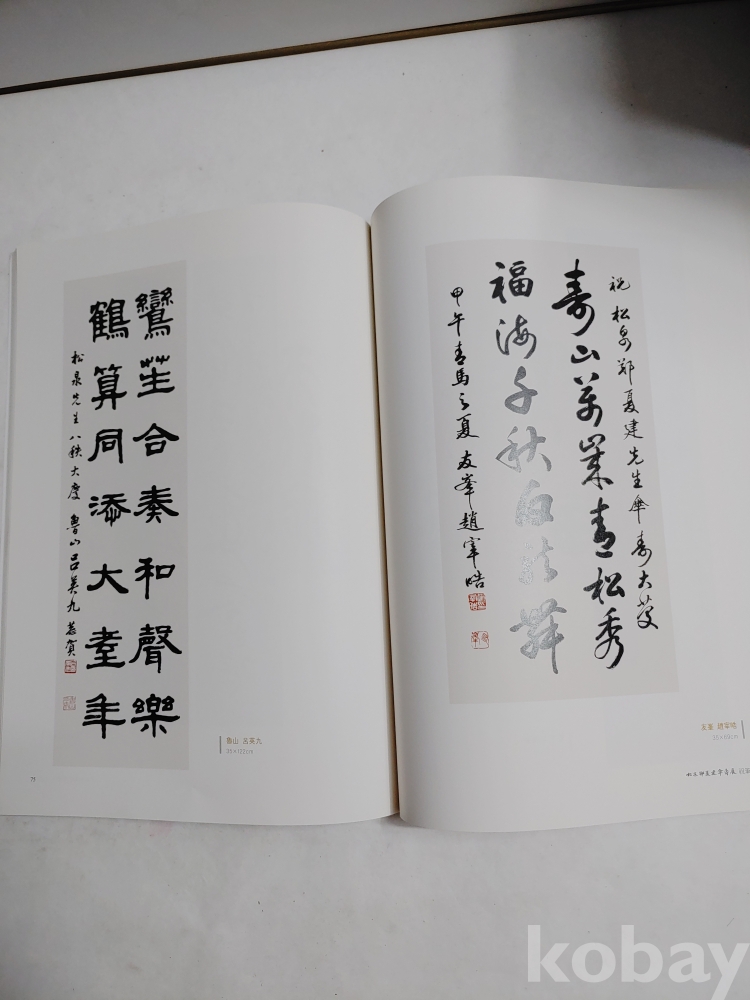 鸞笙合奏和聲樂
鶴算同添大耋年
松泉先生八秩大慶 魯山呂英九 恭賀
魯山 呂英九
35×122cm
75
祝 松泉鄭夏建先生傘壽大慶
壽山萬業青松秀
福海千秋白鶴舞
甲午青馬之夏 友峯趙宰皓
友峯 趙宰皓
kobay